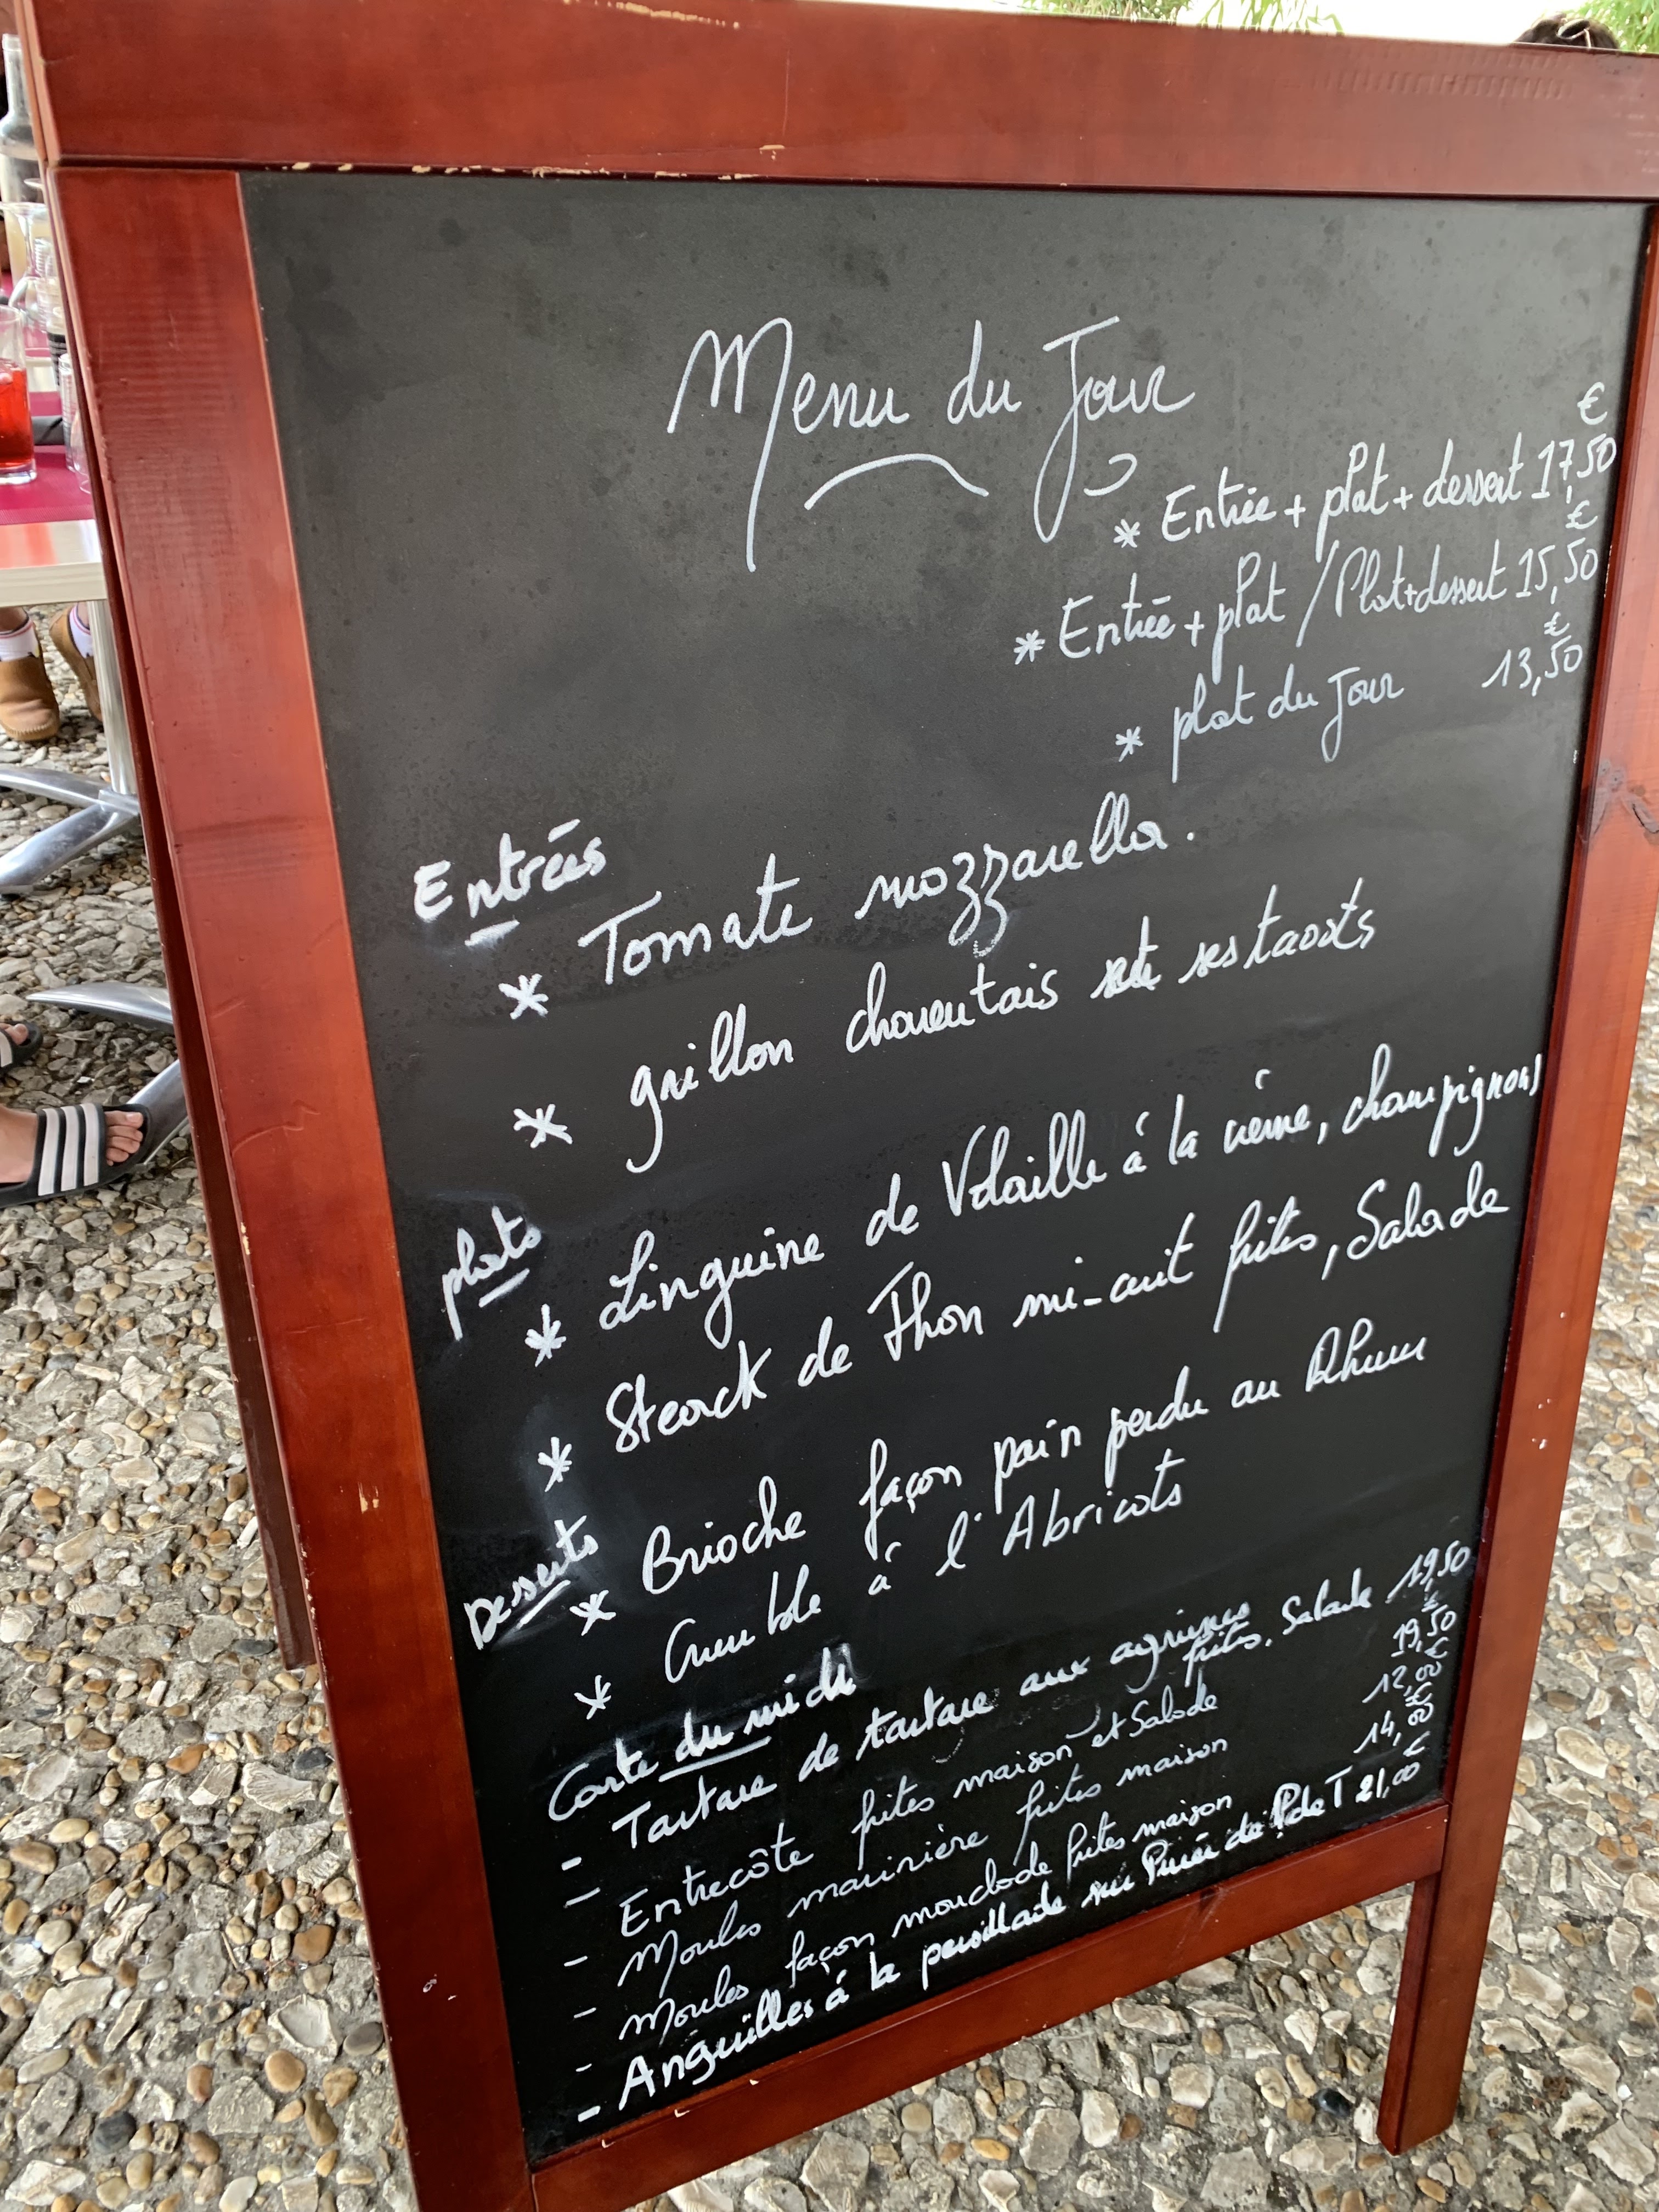 Menu du Jour
* Entrée + plat + dessert 17,50 €
* Entrée + plat / Plat+dessert 15,50 €
* plat du Jour 13,50 €
Entrées
* Tomate mozzarella.
* grillon charentais et ses taosts
plats
* Linguine de Volaille à la crème, champignons
* Steack de Thon mi-cuit frites, Salade
Desserts
* Brioche façon pain perdu au Rhum
* Crumble à l'Abricots
Carte du midi
- Tartare de tartare aux agrumes frites, Salade 19,50
- Entrecôte frites maison et Salade 19,50 €
- Moules marinière frites maison 12,00 €
- Moules façon mouclade frites maison 14,00 €
- Anguilles à la persillade sur Purée de P de T 21,00 €